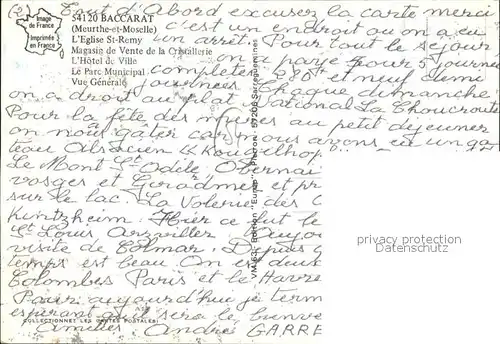 (2) Tout d'Abord excusez la carte merci
Image de France
Imprimée en France
54120 BACCARAT
(Meurthe-et-Moselle)
L'Eglise St-Remy
Magasin de Vente de la Cristallerie
L'Hôtel de Ville
Le Parc Municipal
Vue Générale
c'est un endroit ou on a eu
un arrêt. Pour tout le séjour
on a payé pour 5 journées
complètes
et neuf demi
journées Chaque dimanche
on a droit au plat National La Choucroute
Pour la fête des mères au petit déjeuner
on nous gâter car nous avons eu un ga
teau Alsacien
Le Mont St Odile, Obernai
vosges et Gerardmer et pr
sur le lac. La Volerie des
Kintzheim. Hier ce fut le
St Louis Arzviller
visite de Colmar. Depuis
temps est beau On est
Colombes Paris et le Havre
Pour aujourd'hui je term
esperant qu'il sera le bienve
Amitiés. André GARRE
VM 63 - Edition "Europ" Pierron - 57206 Sarreguemines
COLLECTIONNEZ LES CARTES POSTALES
privacy protection
Datenschutz